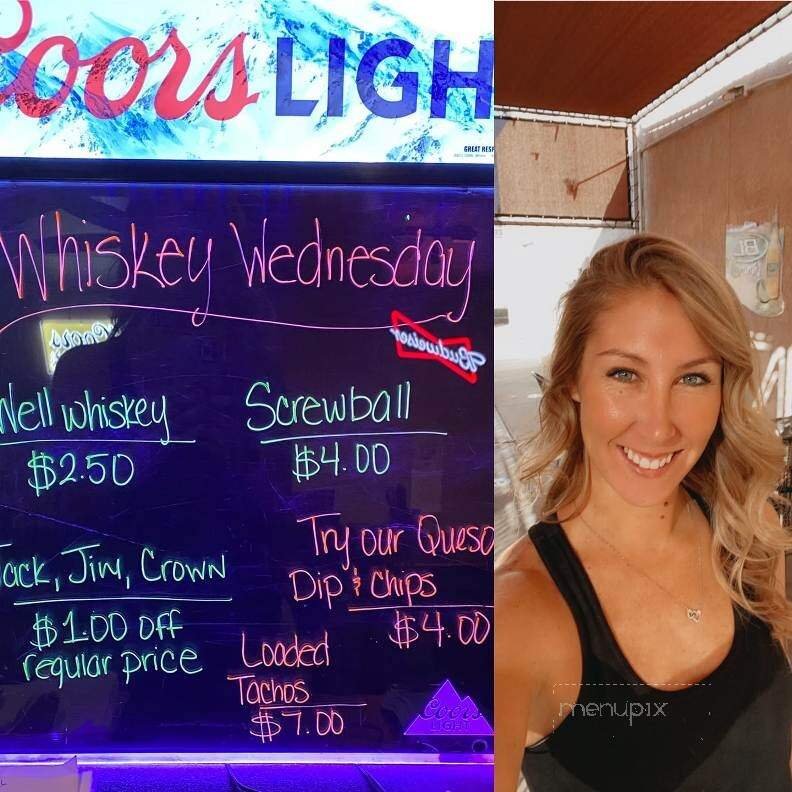 Coors LIGH
GREAT RESP
Whiskey Wednesday
Coors
Budweiser
Well whiskey
$2.50
Screwball
$4.00
Jack, Jim, Crown
$1.00 off
regular price
Try our Queso
Dip & Chips
$4.00
Loaded
Tachos
$7.00
Coors
LIGHT
menupix